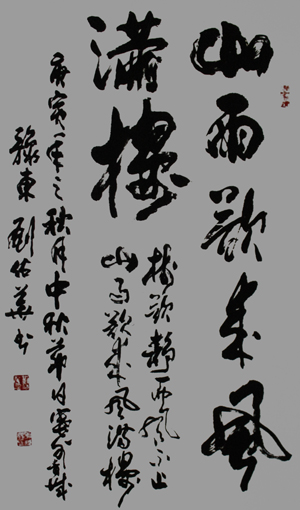 山雨欲来风
满楼
树欲静而风不止
山雨欲来风满楼
庚寅年之秋月中秋节日
豫东刘佑華书